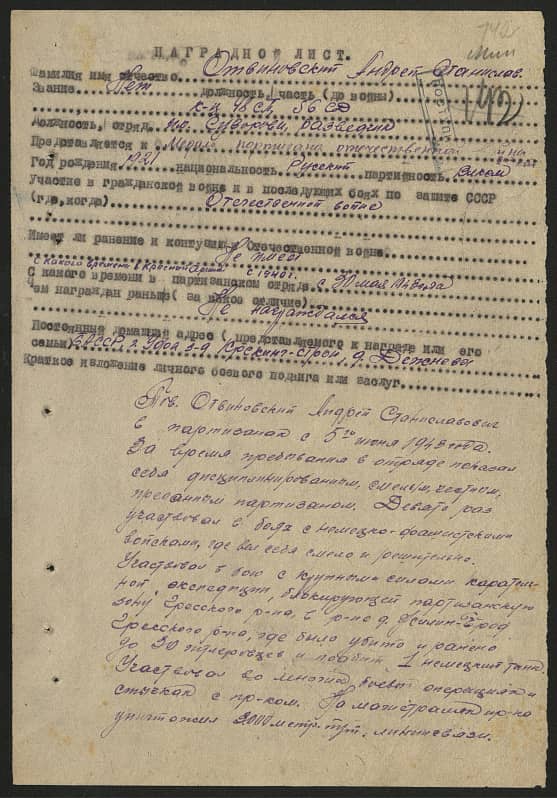 НАГРАДНОЙ ЛИСТ.
Фамилия имя отчество Отвиновский Андрей Станислов.
Звание Ряд должность, часть (до войны)
К-ц 48 СП, 56 СД
Должность, отряд им. Суворова, разведчик
Представляется к Медаль партизана отечественной войны
Год рождения 1921 национальность Русский партийность Влксм
Участие в гражданской войне и в последующих боях по защите СССР
(где, когда) Отечественной войне
Имеет ли ранение и контузии в отечественной войне
Не имеет
С какого времени в Красной армии с 1940 г.
С какого времени в партизанском отряде с 30 мая 1943 года
Чем награжден раньше (за какое отличие)
Не награждался
Постоянный домашний адрес (представляемого к награде или его
семьи) г. Уфа з-д Крекинг-строй, д.
Краткое изложение личного боевого подвига или заслуг
Тов. Отвиновский Андрей Станиславович
в партизанах с 5го июня 1943 года.
За время пребывания в отряде показал
себя дисциплинированным, смелым, честным,
преданным партизаном. Девять раз
участвовал в боях с немецко-фашистскими
войсками, где вел себя смело и решительно.
Участвовал в бою с крупными силами каратель-
ной экспедиции, блокирующей партизанскую
зону Гресского р-на, в р-не д. Жилин-Брод
Гресского р-на, где было убито и ранено
до 30 гитлеровцев и подбит 1 немецкий танк.
Участвовал во многих боевых операциях и
стычках с пр-ком. На магистралях пр-ка
уничтожил 2000 метр. тел. линии связи.